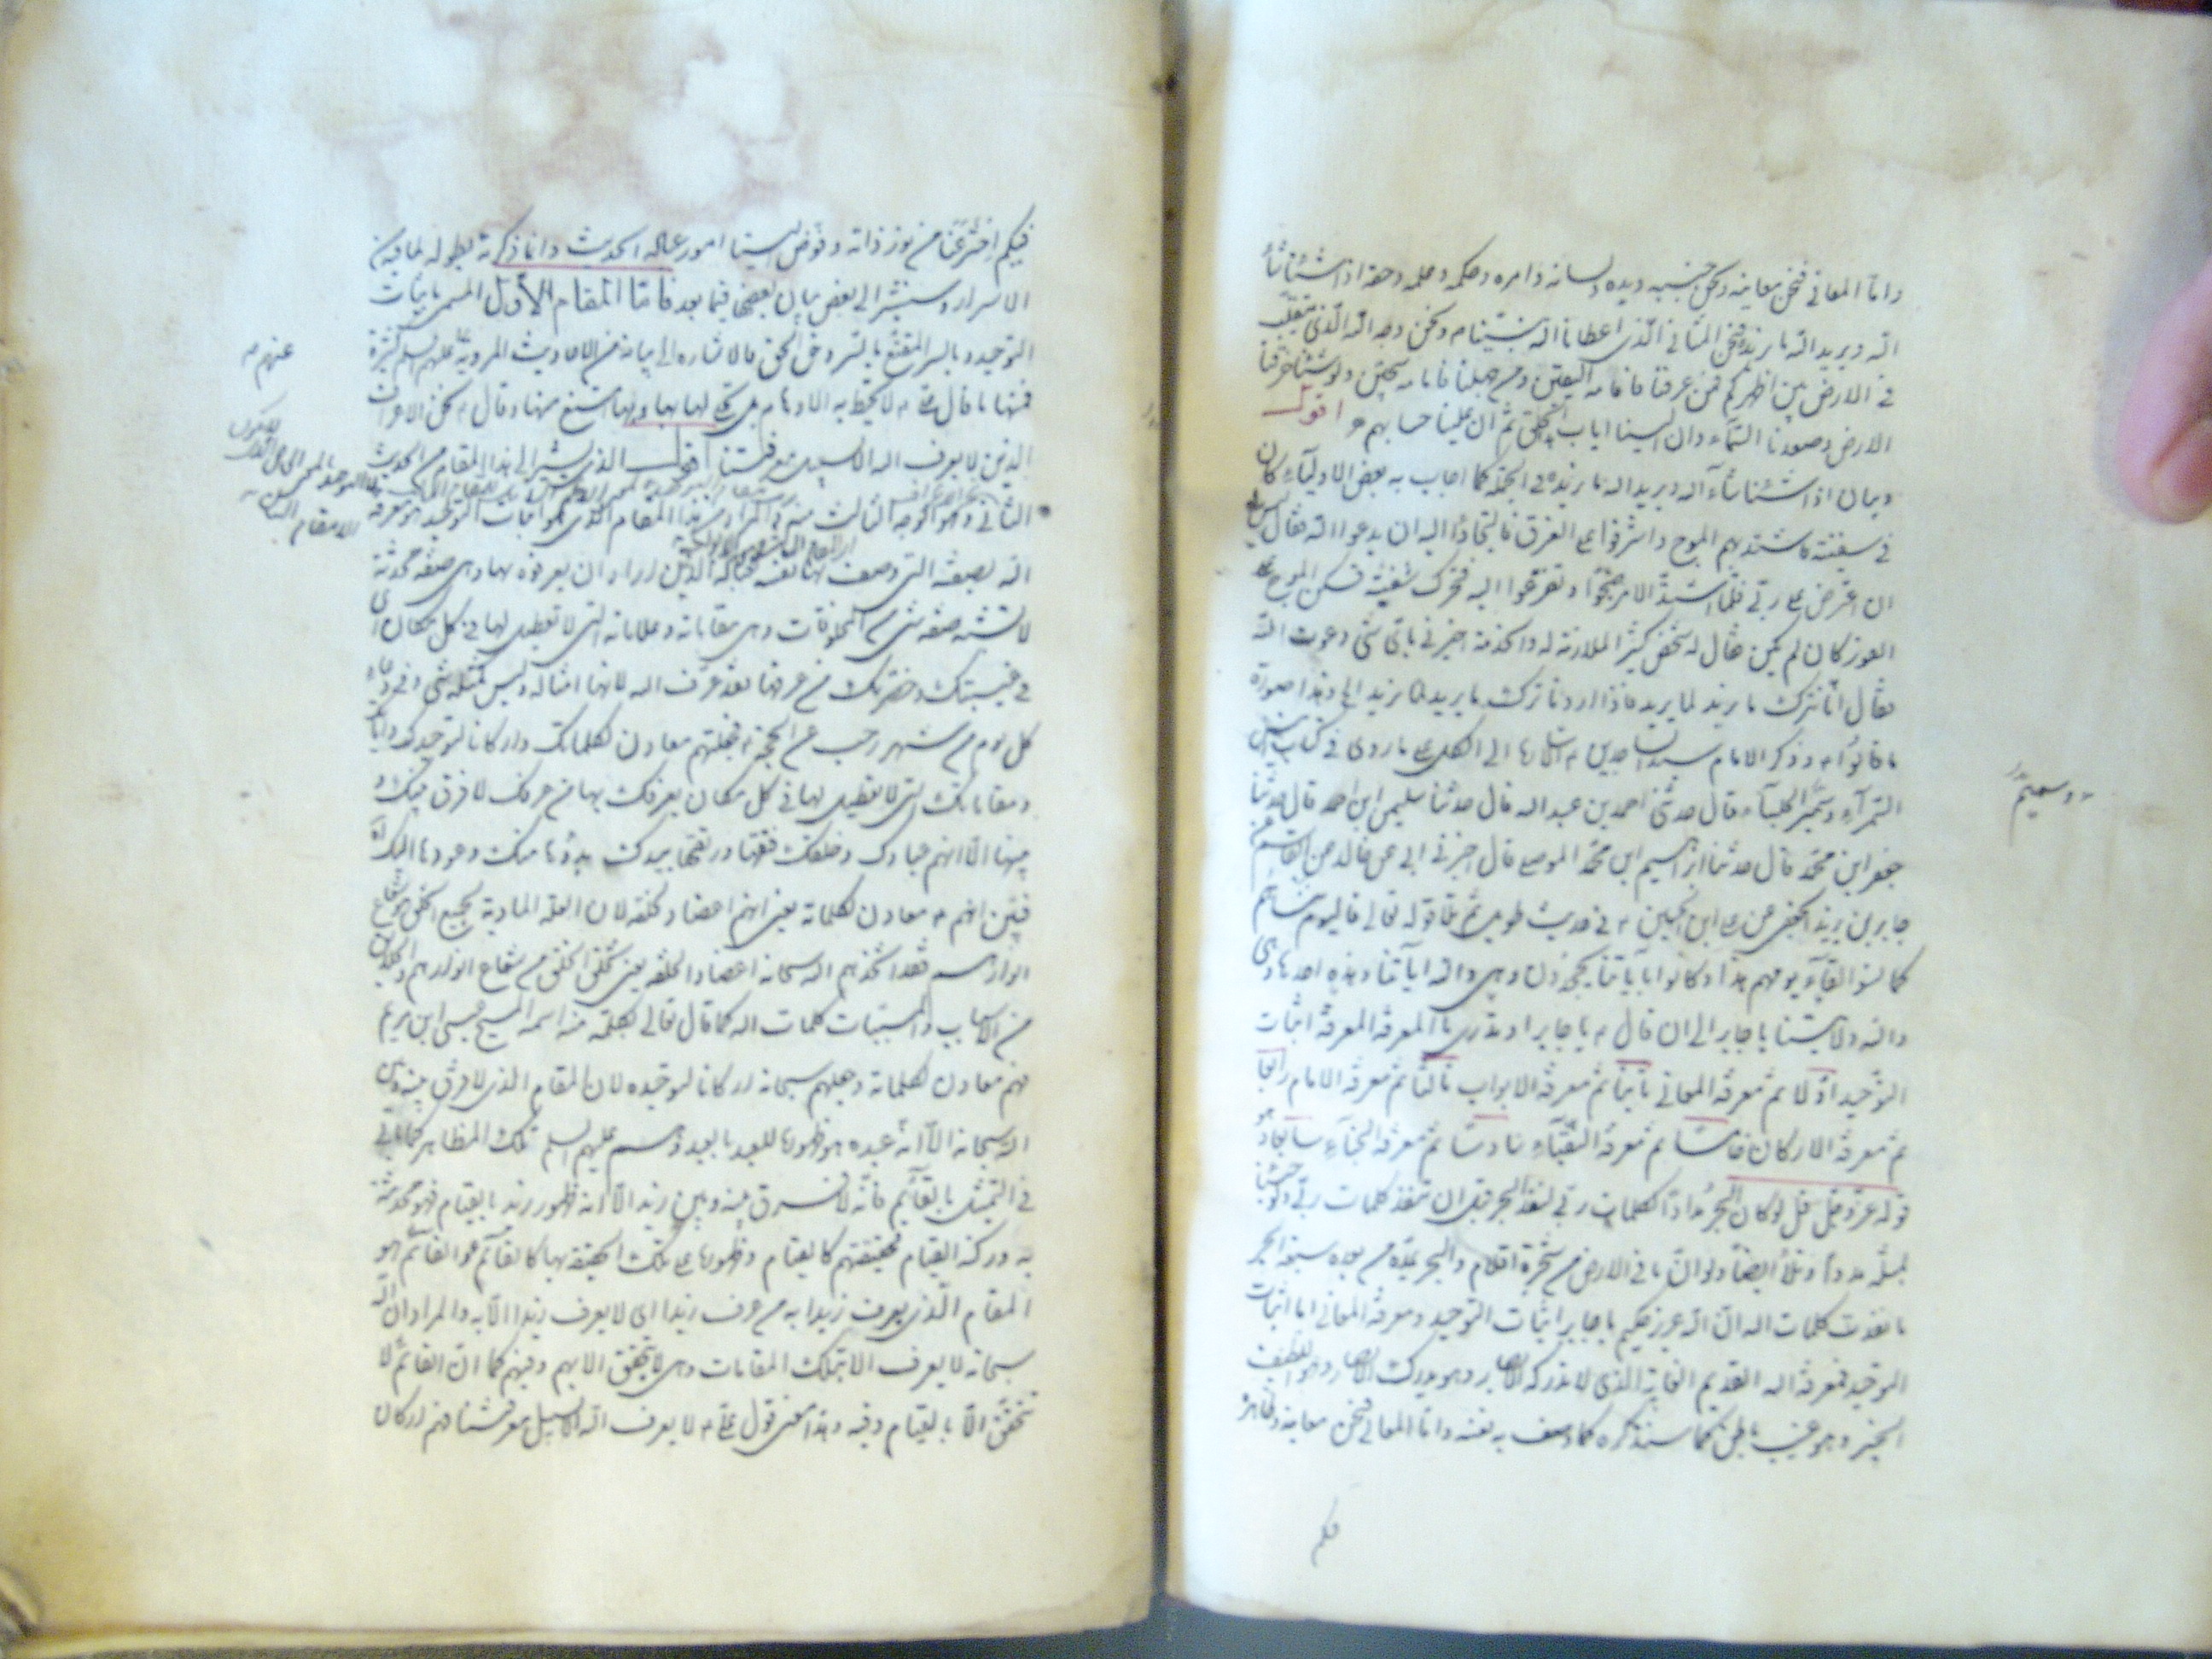 واما المعاني فنحن معانيه ونحن جنبه ويده ولسانه وامره وحكمه وعلمه وحقه اذا شئنا شاء
الله ويريد الله ما نريد فنحن المثاني الذي اعطانا الله نبينا ونحن وجه الله الذي يتقلب
في الارض بين اظهركم فمن عرفنا فامامه اليقين ومن جهلنا فامامه سجين ولو شئنا خرقنا
الارض وصعدنا السماء وان الينا اياب الخلق ثم ان علينا حسابهم اقول
وبيان اذا شئنا شاء الله ويريد الله ما نريده في الجملة كما اجاب به بعض الاولياء كان
في سفينة فاشتد بهم الموج واشرفوا على الغرق فالتجاؤا اليه ان يدعو الله فقال
ان اعترض على ربي فلما اشتد الامر ضجوا وتضرعوا اليه فحرك شفتيه فسكن الموج
الفور كان لم يكن فقال له شخص كثير الملازمة له والخدمة اخبرني باي شي دعوت الله
فقال انا نترك ما نريد لما يريد فاذا اردنا ترك ما يريد لما نريد وهذا صورة
ما قالوا وذكر الامام سيد الساجدين اشارة الى الكل على ما روى في كتاب انيس
السمراء وسمير الجلساء قال حدثني احمد بن عبد الله قال حدثنا سليمن ابن احمد قال حدثنا
جعفر ابن محمد قال حدثنا ابرهيم ابن محمد الموصلي قال اخبرني ابي عن خالد عن القاسم عن
جابر بن يزيد الجعفي عن علي ابن الحسين في حديث طويل ثم تلا قوله تعالى فاليوم ننساهم
كما نسوا لقاء يومهم هذا وكانوا باياتنا يجحدون وهي والله اياتنا وهذه احدها وهي
والله ولايتنا يا جابر الى ان قال يا جابر اوتدري ما المعرفة المعرفة اثبات
التوحيد اولا ثم معرفة المعاني ثانيا ثم معرفة الابواب ثالثا ثم معرفة الامام رابعا
ثم معرفة الاركان خامسا ثم معرفة النقباء سادسا ثم معرفة النجباء سابعا وهو
قوله عز وجل قل لو كان البحر مدادا لكلمات ربي لنفد البحر قبل ان تنفد كلمات ربي ولو جئنا
بمثله مددا وتلا ايضا ولو ان ما في الارض من شجرة اقلام والبحر يمده من بعده سبعة ابحر
ما نفدت كلمات الله ان الله عزيز حكيم يا جابر اثبات التوحيد ومعرفة المعاني اما اثبات
التوحيد فمعرفة الله القديم الغاية الذي لا تدركه الابصار وهو يدرك الابصار وهو اللطيف
الخبير وهو غيب باطن كما سنذكره كما وصف به نفسه واما المعاني فنحن معانيه وظاهره
فيكم
فيكم اخترعنا من نور ذاته وفوض الينا امور عباده الحديث وانما ذكرته بطوله لما فيه من
الاسرار وسنشير الى بعض بيان بعضها فيما بعد فاما المقام الاول المسمى باثبات
التوحيد وبالسر المقنع بالسر وحق الحق فالاشارة الى بيانه من الاحاديث المروية عنهم عليهم السلم كثيرة
فمنها ما قال علي لا تحيط به الاوهام بل تجلى لها بها وبها امتنع منها وقال نحن الاعراف
الذين لا يعرف الله الا بسبيل معرفتنا اقول الذي يشير الى هذا المقام من الحديث
الثاني وهو الوجه الثالث المراد من هذا المقام الذي هو اثبات التوحيد هو معرفة
الله بصفته التي وصف بها نفسه لعباده الذين اراد ان يعرفوه بها وهي صفة محدثة
لا تشبه صفة شي من المخلوقات وهي مقاماته وعلاماته التي لا تعطيل لها في كل مكان اي
في غيبتك وحضرتك من عرفها فقد عرف الله لانها امثاله وليس كمثله شي وفي دعاء
كل يوم من شهر رجب عن الحجة فجعلتهم معادن لكلماتك واركانا لتوحيدك واياتك
ومقاماتك التي لا تعطيل لها في كل مكان يعرفك بها من عرفك لا فرق بينك و
بينها الا انهم عبادك وخلقك فتقها ورتقها بيدك بدؤها منك وعودها اليك
فبين انهم معادن لكلماته يعني انهم اعضاد لخلقه لان العلة المادية لجميع الخلق شعاع
انوارهم فقد اتخذهم الله سبحانه اعضادا لخلقه يعني خلق الخلق من شعاع انوارهم والخلق
من الاسباب والمسببات كلمات الله كما قال تعالى بكلمة منه اسمه المسيح عيسى ابن مريم
فهم معادن لكلماته وجعلهم سبحانه اركانا لتوحيده لان المقام الذي لا فرق بينه وبين
الله سبحانه الا انه عبده هو ظهورها للعبد بالعبد وهم عليهم السلم تلك المظاهر كما ياتي
في التمثيل بالقائم فانه لا فرق بينه وبين زيد الا انه ظهور زيد بالقيام فهو محدث
به وركنه القيام فحقيقتهم كالقيام وظهورها على تلك الحقيقة بها كالقائم هو القائم هو
المقام الذي يعرف زيدا به من عرف زيدا اي لا يعرف زيدا الا به والمراد ان الله
سبحانه لا يعرف الا بتلك المقامات وهي لا تتحقق الا بهم وفيهم كما ان القائم لا
يتحقق الا بالقيام وفيه وهذا معنى قول علي لا يعرف الله الا بسبيل معرفتنا فهم اركان